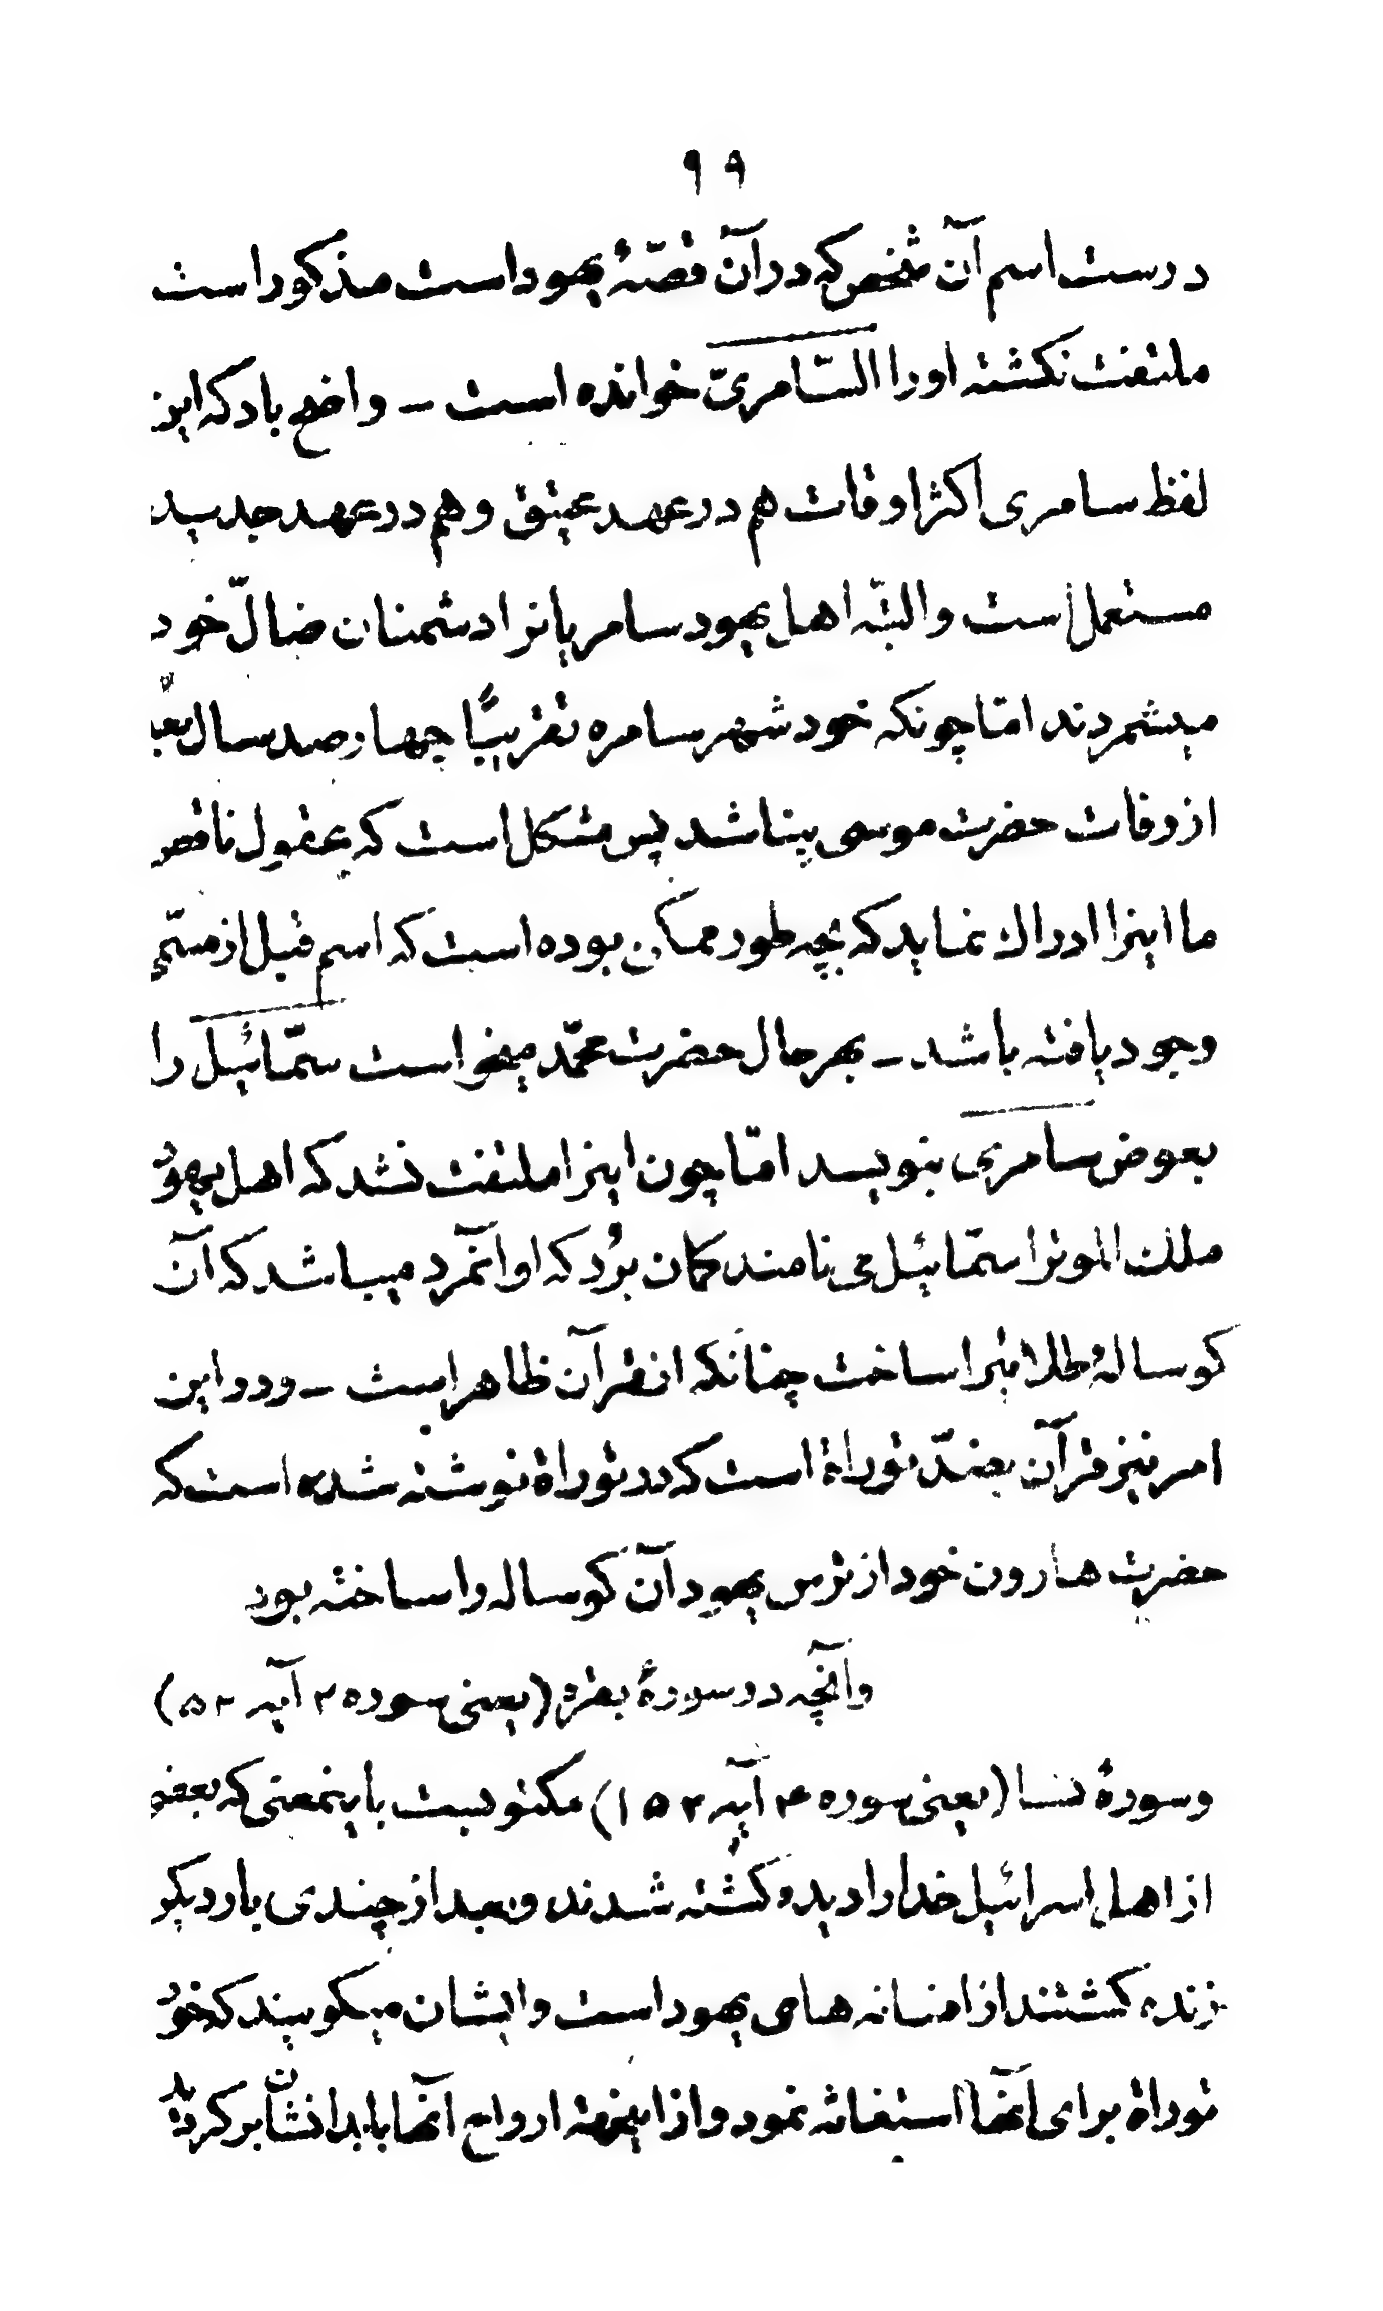 ۹۹
درست اسم آن شخص که در آن قصّهٔ یهود است مذکور است
ملتفت نکشته او را السّامریّ خوانده است – واضح باد که این
لفظ سامری اکثر اوقات هم در عهد عتیق و هم در عهد جدید
مستعمل است والبتّه اهل یهود سامریانرا دشمنان ضالّ خود
میشمردند امّا چونکه خود شهر سامره تقریباً چهار صد سال بعد
از وفات حضرت موسی بنا شد پس مشکل است که عقول ناقص
ما اینرا ادراك نماید که بچه طور ممکن بوده است که اسم قبل از مسمّی
وجود یافته باشد – بهر حال حضرت محمّد میخواست سمّائیل را
بعوض سامری بنویسد امّا چون اینرا ملتفت نشد که اهل یهود
ملك الموترا سمّائیل می نامند کمان برُد که او آنمرد میباشد که آن
کوسالهٔ طلائیرا ساخت چنانکه از قرآن ظاهر است – و در این
امر نیز قرآن بضدّ توراة است که در توراة نوشته شده است که
حضرت هارون خود از ترس یهود آن کوساله را ساخته بود
وآنچه در سورهٔ بقره (یعنی سوره ۲ آیه ۵۲)
و سورهٔ نسا (یعنی سوره ۴ آیه ۱۵۲) مکتوبست باینمعنی که بعضی
از اهل اسرائیل خدا را دیده کشته شدند و بعد از چندی بار دیکر
زنده کشتند از افسانه های یهود است و ایشان میکویند که خود
توراة برای آنها استغاثه نمود و از اینجهة ارواح آنها بابدانشان بر کردید